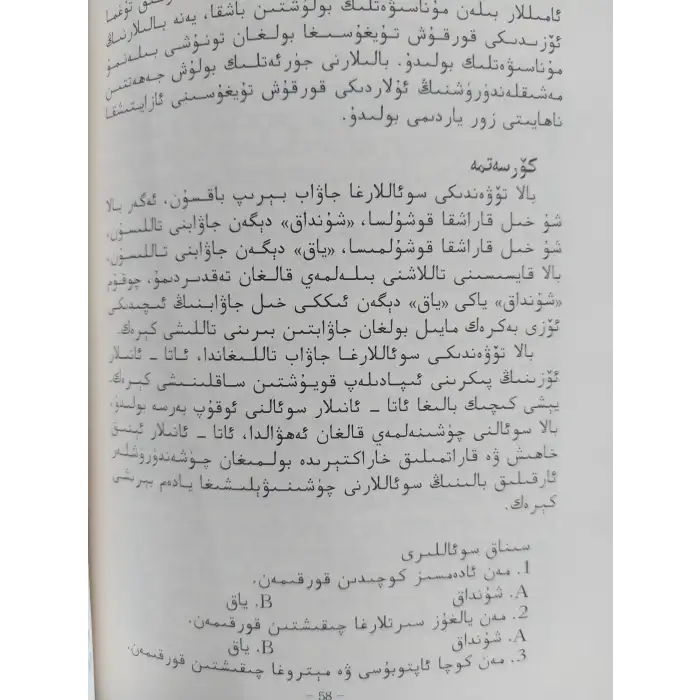 ئامىللار بىلەن مۇناسىۋەتلىك بولۇشتىن باشقا، يەنە بالىلارنىڭ
ئۆزىدىكى قورقۇش تۇيغۇسىغا بولغان تونۇشى بىلەنمۇ
مۇناسىۋەتلىك بولىدۇ. بالىلارنى جۈرئەتلىك بولۇش جەھەتتىن
مەشىقلەندۈرۈشنىڭ ئۇلاردىكى قورقۇش تۇيغۇسىنى ئازايتىشقا
ناھايىتى زور ياردىمى بولىدۇ.
كۆرسەتمە
بالا تۆۋەندىكى سوئاللارغا جاۋاب بېرىپ باقسۇن، ئەگەر بالا
شۇ خىل قاراشقا قوشۇلسا، «شۇنداق» دېگەن جاۋابنى تاللىسۇن،
شۇ خىل قاراشقا قوشۇلمىسا، «ياق» دېگەن جاۋابنى تاللىسۇن،
بالا قايسىسىنى تاللاشنى بىلەلمەي قالغان تەقدىردىمۇ، چوقۇم
«شۇنداق» ياكى «ياق» دېگەن ئىككى خىل جاۋابنىڭ ئىچىدىكى
ئۆزى بەكرەك مايىل بولغان جاۋابتىن بىرىنى تاللىشى كېرەك.
بالا تۆۋەندىكى سوئاللارغا جاۋاب تاللىغاندا، ئاتا - ئانىلار
ئۆزىنىڭ پىكرىنى ئىپادىلەپ قويۇشتىن ساقلىنىشى كېرەك.
يېشى كىچىك بالىغا ئاتا - ئانىلار سوئالنى ئوقۇپ بەرسە بولىدۇ،
بالا سوئالنى چۈشىنەلمەي قالغان ئەھۋالدا، ئاتا - ئانىلار ئېنىق
خاھىش ۋە قاراتمىلىق خاراكتېرىدە بولمىغان چۈشەندۈرۈشلەر
ئارقىلىق بالىنىڭ سوئاللارنى چۈشىنىۋېلىشىغا ياردەم بېرىشى
كېرەك.
سىناق سوئاللىرى
1. مەن ئادەمسىز كوچىدىن قورقىمەن.
A. شۇنداق B. ياق
2. مەن يالغۇز سىرتلارغا چىقىشتىن قورقىمەن.
A. شۇنداق B. ياق
3. مەن كوچا ئاپتوبۇسى ۋە مېتروغا چىقىشتىن قورقىمەن.
- 58 -